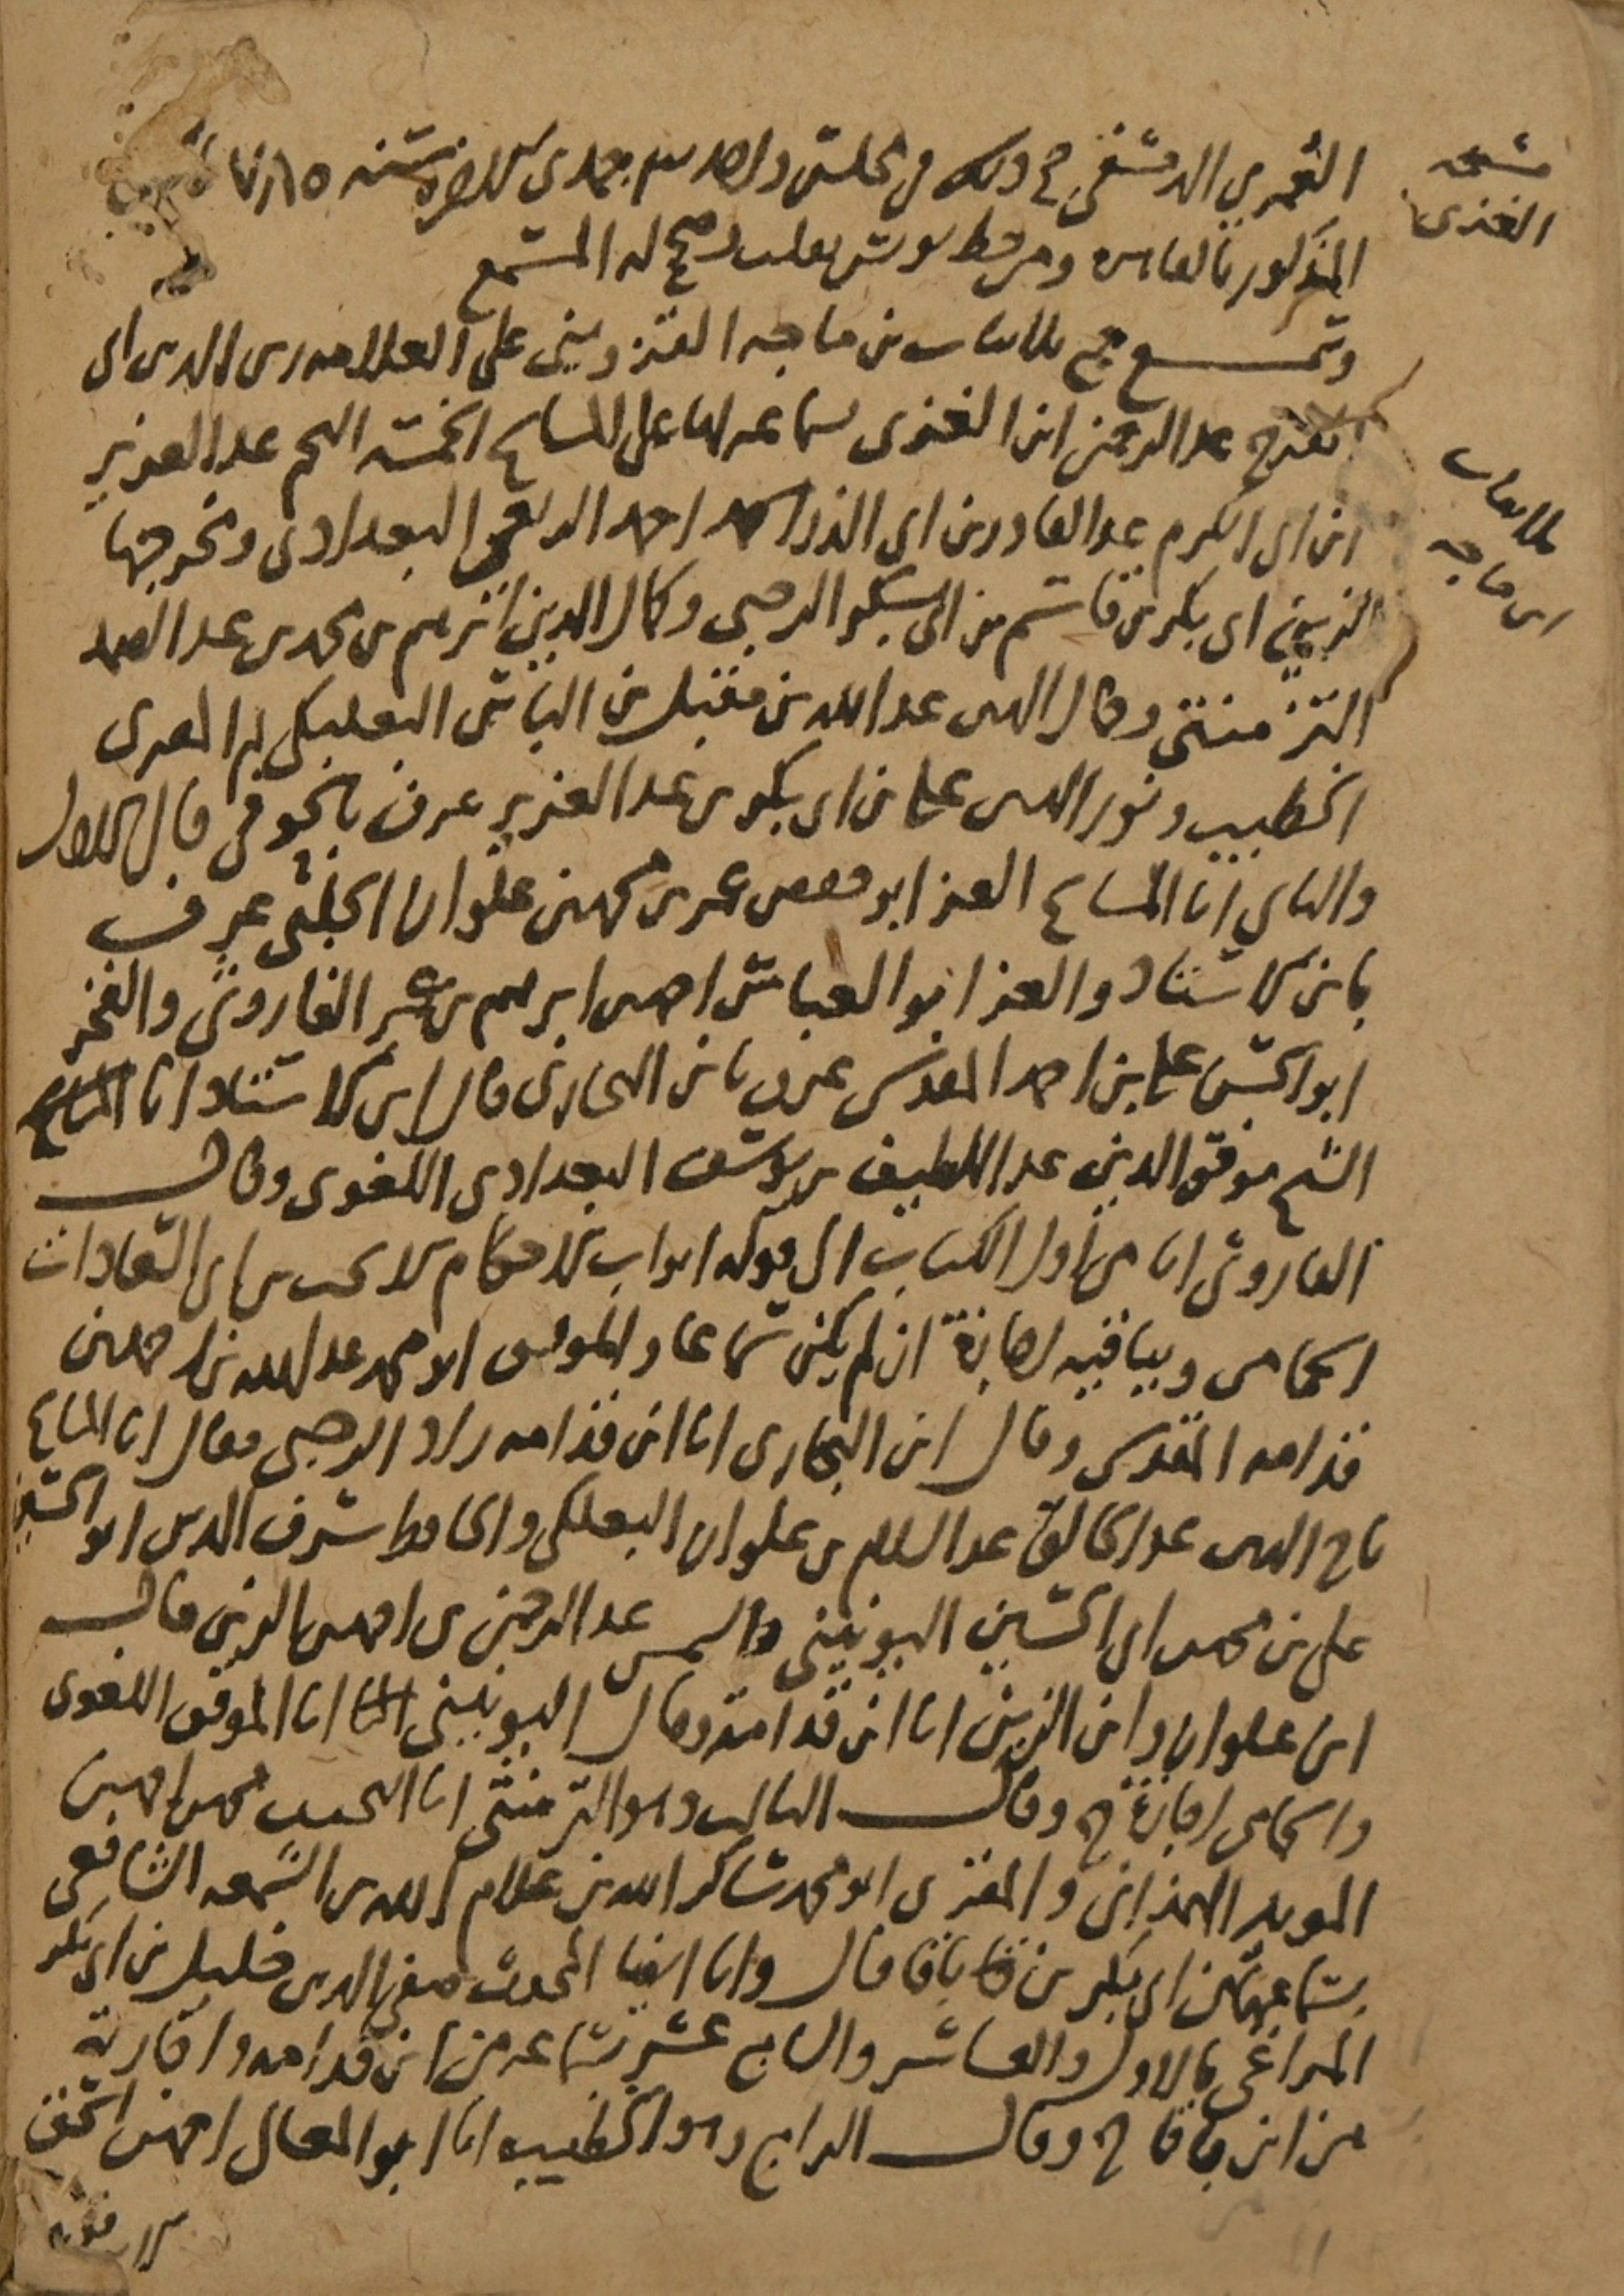 مشيخة
الغزي
العمري الدمشقي ح وذلك في مجلس واحد جمادى الاخرة سنة
المذكور بالقاهرة ومن خط يونس نقلت وصح له المسمع
وتسمع ج ثلاثيات بن ماجه القزويني على العلامة زين الدين ابي
الفرج عبد الرحمن ابن الغزي بسماعه لها على المشايخ الخمسة النجم عبد العزيز
ثلاثيات
ابن ماجه
ابن ابي الكرم عبد القادر بن ابي الذر احمد الربعي البغدادي ومخرجها
الزيني ابي بكر بن قاسم بن ابي بكر الرحبي وكمال الدين ابرهيم بن محمد بن عبد الصمد
التزمنتي وكمال الدين عبد الله بن مقبل بن الياس البعلبكي ثم المصري
الخطيب ونور الدين علي بن ابي بكر بن عبد العزيز عرف قال الاول
والثاني انا المشايخ العز ابو حفص عمر بن محمد بن علوان الحلبي عرف
بابن الاستاد والعز ابو العباس احمد بن ابرهيم بن عمر الفاروثي والفخر
ابو الحسن علي بن احمد المقدسي عرف بابن البخاري قال ابن الاستاد انا
الشيخ موفق الدين عبد اللطيف بن يوسف البغدادي اللغوي وقال
الفاروثي انا من اول الكتاب الى قوله ابواب الاحكام الانجب بن ابي السعادات
الحمامي وبباقيه اجازة ان لم يكن سماعا والموفق ابو محمد عبد الله بن احمد بن
قدامه المقدسي وقال ابن البخاري انا ابن قدامه زاد الرحبي فقال انا المشايخ
تاج الدين عبد الخالق عبد السلام بن علوان البعلبكي والحافظ شرف الدين ابو الحسين
علي بن محمد بن ابي الحسين اليونيني والشمس عبد الرحمن بن احمد بن الزين قال
ابن علوان وابن الزين انا ابن قدامة وقال اليونيني انا الموفق اللغوي
والحمامي اجازة ح وقال الثالث وهو التزمنتي انا النجيب محمد بن احمد بن
المويد الهمذاني والمقري ابو محمد شاكر الله بن غلام الله بن الشمعه الشافعي
بسماعهما من ابي بكر بن باقا قال وانا ايضا المحدث صفي الدين خليل بن ابي بكر
المراغي بالاول والعاشر والسابع عشر بسماعه من ابن قدامه واجازته
من ابن باقا ح وقال الرابع وهو الخطيب انا ابو المعالي احمد بن اسحق